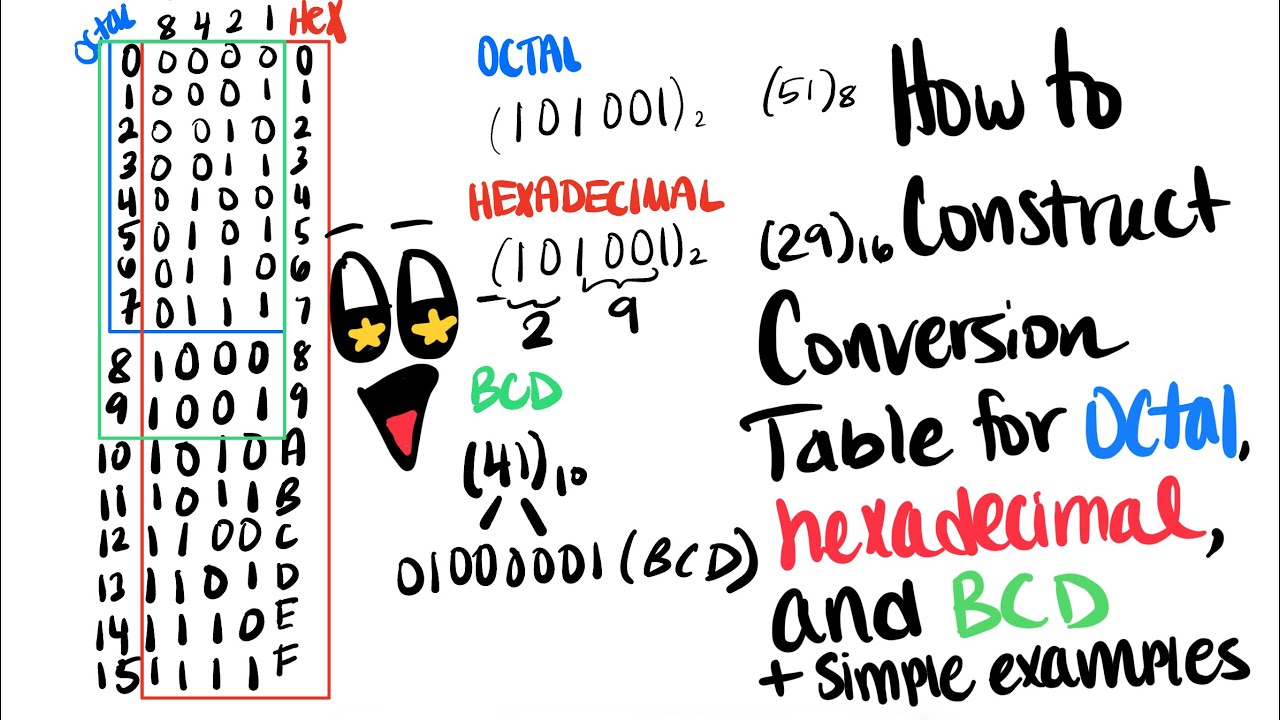 Octal 8 4 2 1 Hex
0 0 0 0 0 0
1 0 0 0 1 1
2 0 0 1 0 2
3 0 0 1 1 3
4 0 1 0 0 4
5 0 1 0 1 5
6 0 1 1 0 6
7 0 1 1 1 7
8 1 0 0 0 8
9 1 0 0 1 9
10 1 0 1 0 A
11 1 0 1 1 B
12 1 1 0 0 C
13 1 1 0 1 D
14 1 1 1 0 E
15 1 1 1 1 F
OCTAL
(101001)₂ (51)₈
HEXADECIMAL
(101001)₂ (29)₁₆
2 9
BCD
(41)₁₀
01000001 (BCD)
How to
Construct
Conversion
Table for Octal,
hexadecimal,
and BCD
+ simple examples